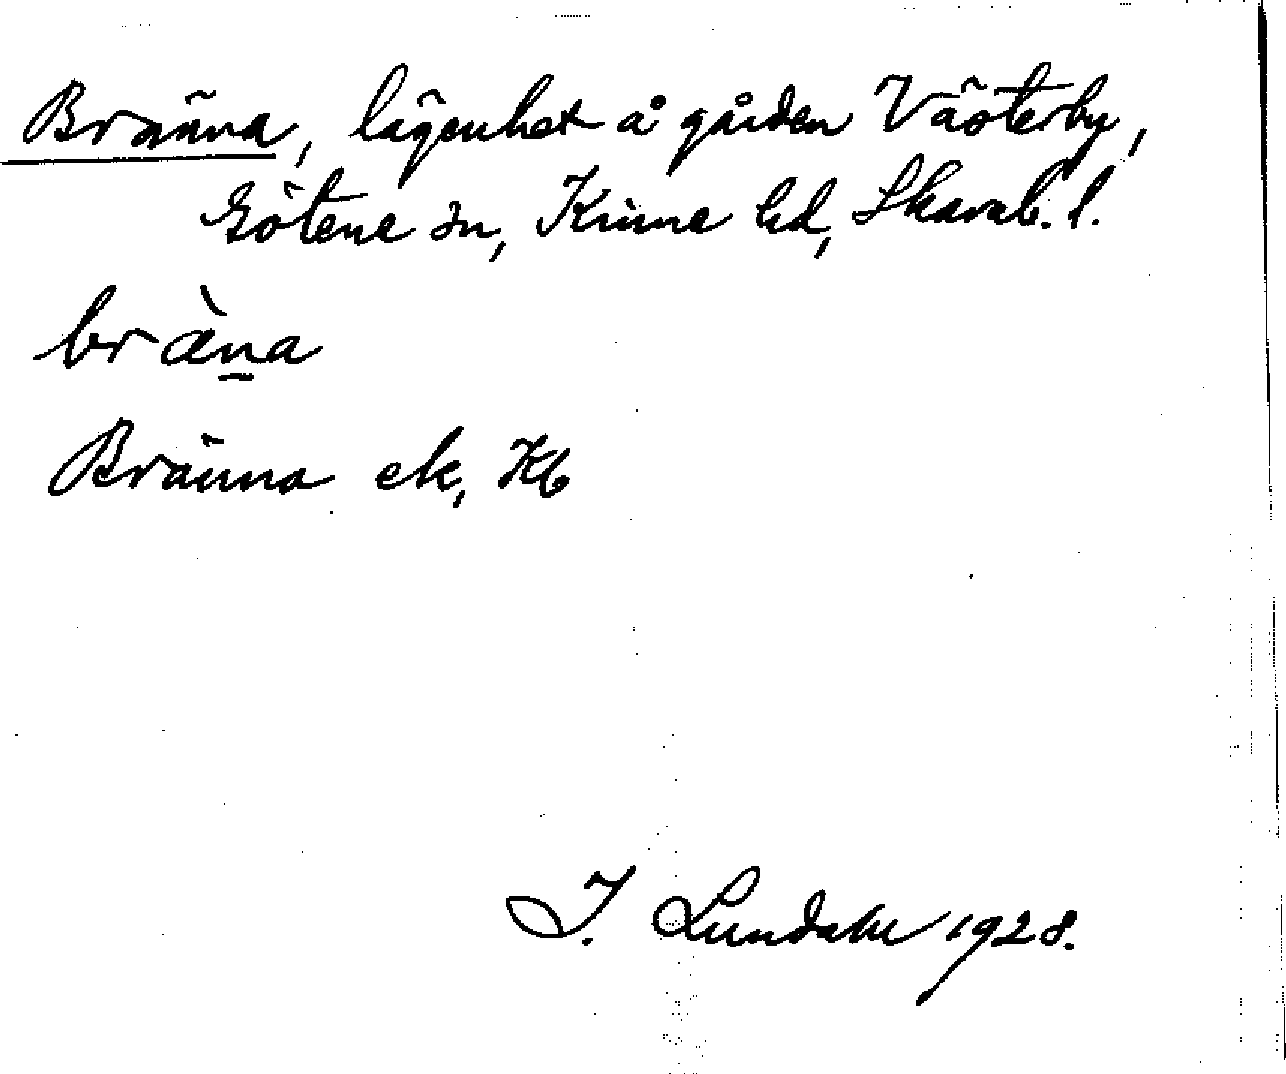 Bränna, lägenhet å gården Västerby,
Götene sn, Kinne hd, Skarab. l.
bræ̀n̲a
Bränna ek, Kb
I. Lundahl 1928.